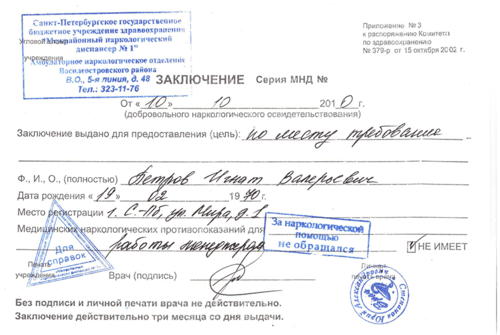 Санкт-Петербургское государственное
бюджетное учреждение здравоохранения
"Межрайонный наркологический
диспансер № 1"
Угловой
учреждения
Амбулаторное наркологическое отделение
Василеостровского района
В.О., 5-я линия, д. 48
Тел.: 323-11-76
Приложение № 3
к распоряжению Комитета
по здравоохранению
№ 379-р от 15 октября 2002 г.
ЗАКЛЮЧЕНИЕ Серия МНД №
От « 10 » 10 2010 г.
(добровольного наркологического освидетельствования)
Заключение выдано для предоставления (цель): по месту требования
Ф., И., О., (полностью) Петров Игнат Валерьевич
Дата рождения « 19 » 02 1970 г.
Место регистрации г. С.-Пб, ул. Мира, д. 1
Медицинских наркологических противопоказаний для
За наркологической
помощью
не обращался
работы менеджером
НЕ ИМЕЕТ
Для
справок
Печать
учреждения
Врач (подпись)
Личная
печать врача
Степанов Юрий Александрович
Без подписи и личной печати врача не действительно.
Заключение действительно три месяца со дня выдачи.